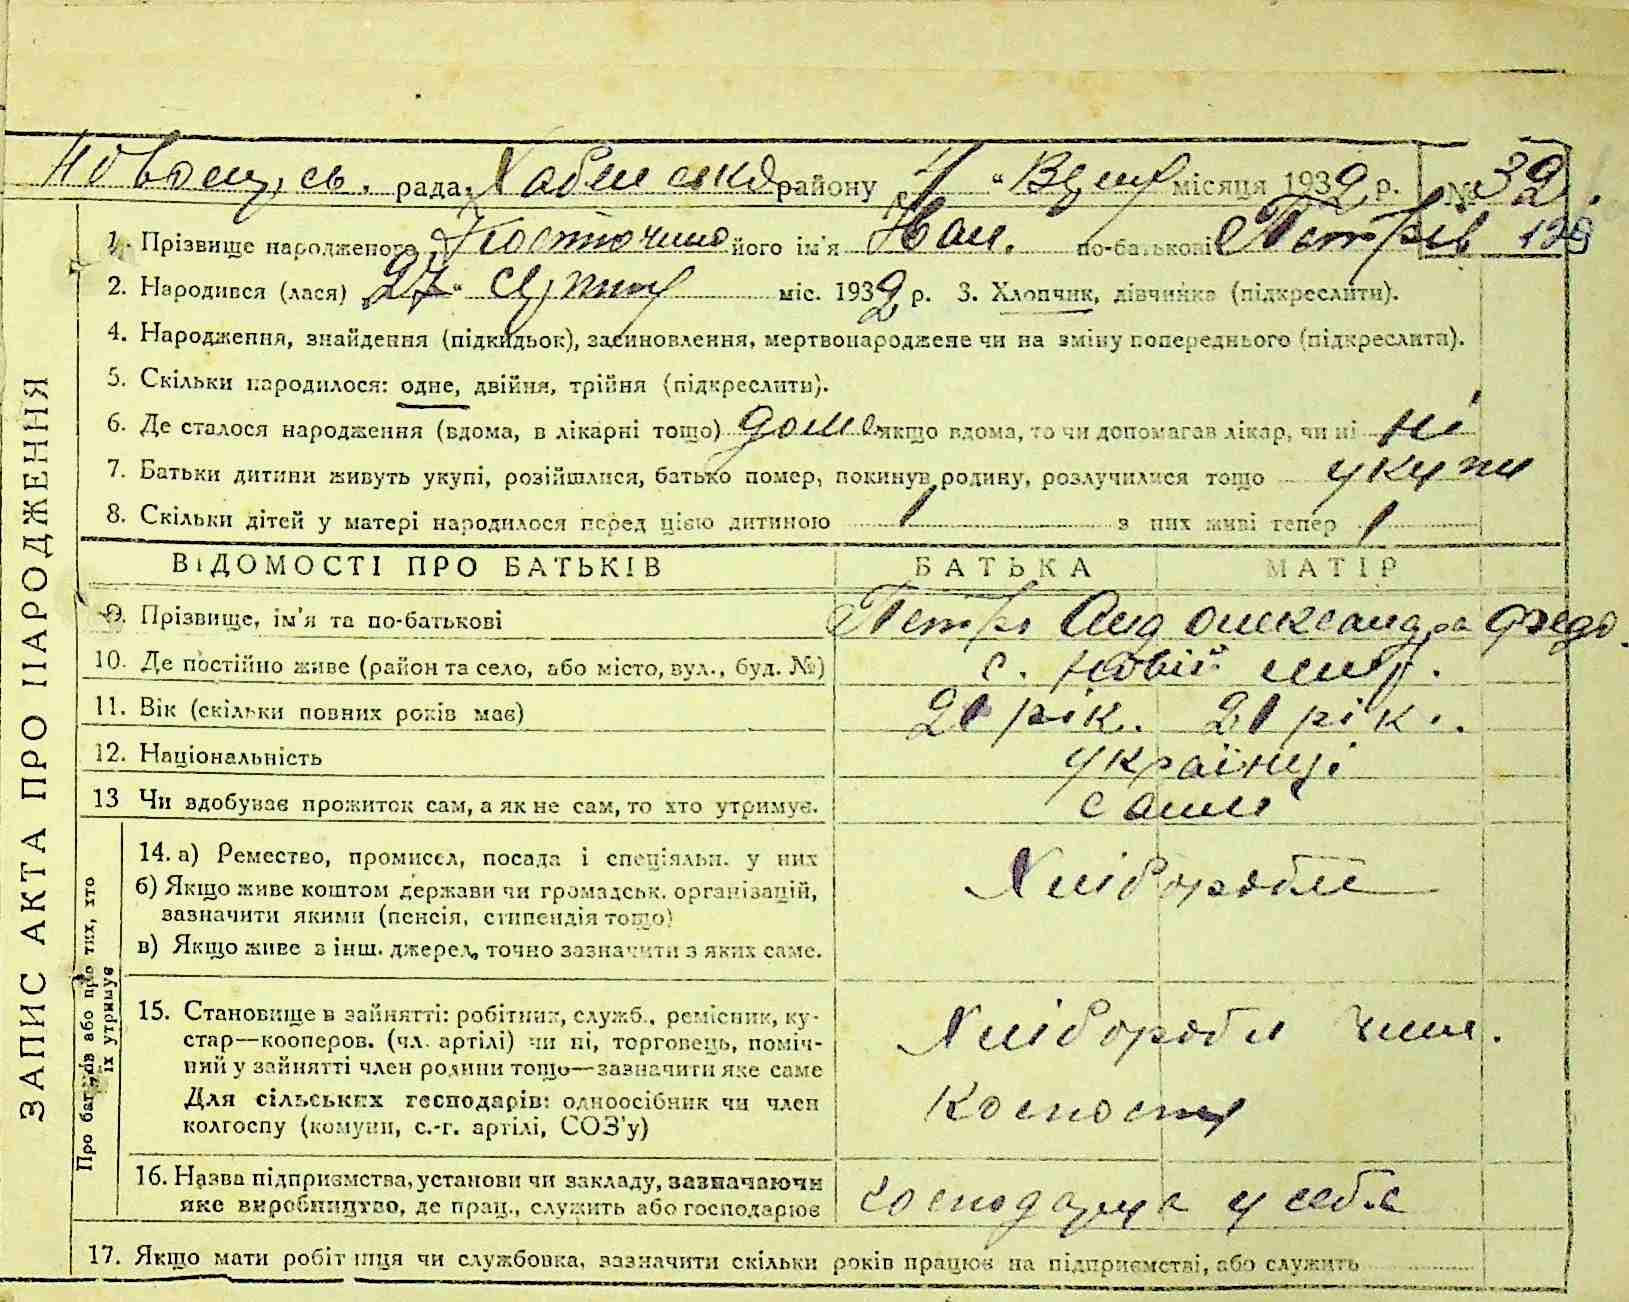 рада, Хабенська району „4" місяця 1932 р. № 32
1. Прізвище народженого його ім'я по-батькові Петрів 129
2. Народився (лася) „27" серпня міс. 1932 р. 3. Хлопчик, дівчинка (підкреслити).
4. Народження, знайдення (підкидьок), засиновлення, мертвонароджене чи на зміну попереднього (підкреслити).
5. Скільки народилося: одне, двійня, трійня (підкреслити).
6. Де сталося народження (вдома, в лікарні тощо) дома якщо вдома, то чи допомагав лікар, чи ні ні
7. Батьки дитини живуть укупі, розійшлися, батько помер, покинув родину, розлучилися тощо укупи
8. Скільки дітей у матері народилося перед цією дитиною 1 з них живі тепер 1
ВІДОМОСТІ ПРО БАТЬКІВ БАТЬКА МАТІР
9. Прізвище, ім'я та по-батькові Петро Анд Олександра Федо.
10. Де постійно живе (район та село, або місто, вул., буд. №) с. Новий мир.
11. Вік (скільки повних років має) 21 рік. 21 рік.
12. Національність українці
13 Чи здобуває прожиток сам, а як не сам, то хто утримує. самі
14. а) Ремество, промисел, посада і спеціяльн. у них Хлібороби
б) Якщо живе коштом держави чи громадськ. організацій,
зазначити якими (пенсія, стипендія тощо)
в) Якщо живе з інш. джерел, точно зазначити з яких саме.
15. Становище в зайнятті: робітник, служб., ремісник, ку-
стар—кооперов. (чл. артілі) чи ні, торговець, поміч- Хлібороби член.
ний у зайнятті член родини тощо—зазначити яке саме
Для сільських господарів: одноосібник чи член
колгоспу (комуни, с.-г. артілі, СОЗ'у)
16. Назва підприємства, установи чи закладу, зазначаючи
яке виробництво, де прац., служить або господарює у себе
17. Якщо мати робітниця чи службовка, зазначити скільки років працює на підприємстві, або служить
ЗАПИС АКТА ПРО НАРОДЖЕННЯ
Про батьків або про тих, хто
їх утримує